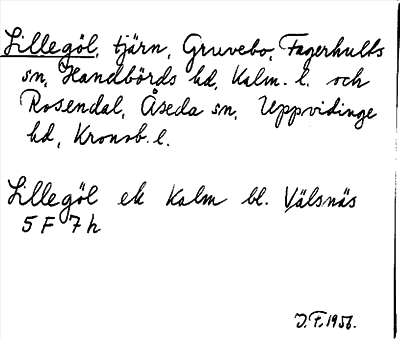 Lillegöl, tjärn, Gruvebo, Fagerhults
sn, Handbörds hd, Kalm. l. och
Rosendal, Åseda sn, Uppvidinge
hd, Kronob. l.
Lillegöl ek Kalm bl. Välsnäs
5 F 7 h
J.F. 1956.